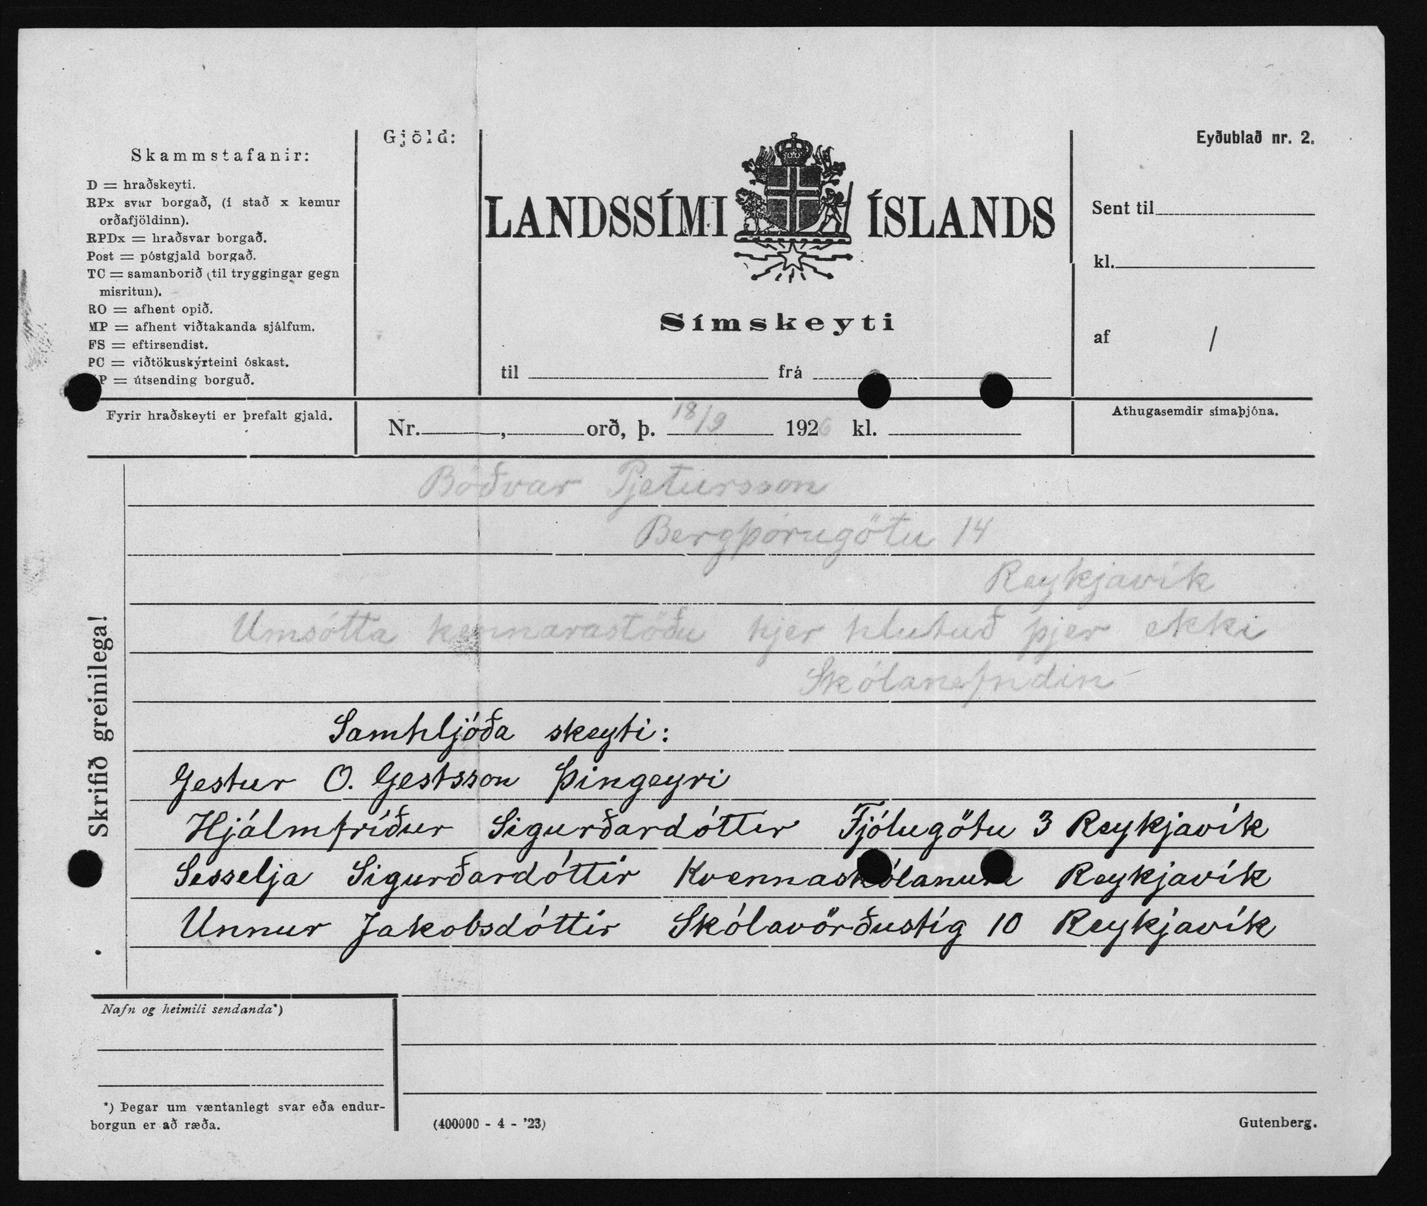 Skammstafanir:
D = hraðskeyti.
RPx svar borgað, (í stað x kemur
orðafjöldinn).
RPDx = hraðsvar borgað.
Post = póstgjald borgað.
TC = samanborið (til tryggingar gegn
misritun).
RO = afhent opið.
MP = afhent viðtakanda sjálfum.
FS = eftirsendist.
PC = viðtökuskýrteini óskast.
P = útsending borguð.
Fyrir hraðskeyti er þrefalt gjald.
Gjöld:
LANDSSÍMI ÍSLANDS
Símskeyti
til frá
Nr. , orð, þ. 18/9 1926 kl.
Eyðublað nr. 2.
Sent til
kl.
af /
Athugasemdir símaþjóna.
Skrifið greinilega!
Böðvar Pjetursson
Bergþórugötu 14
Reykjavík
Umsótta kennarastöðu hjer hlutuð þjer ekki
Skólanefndin
Samhljóða skeyti:
Gestur O. Gestsson Þingeyri
Hjálmfríður Sigurðardóttir Fjólugötu 3 Reykjavík
Sesselja Sigurðardóttir Kvennaskólanum Reykjavík
Unnur Jakobsdóttir Skólavörðustíg 10 Reykjavík
Nafn og heimili sendanda*)
*) Þegar um væntanlegt svar eða endur-
borgun er að ræða.
(400000 - 4 - '23)
Gutenberg.